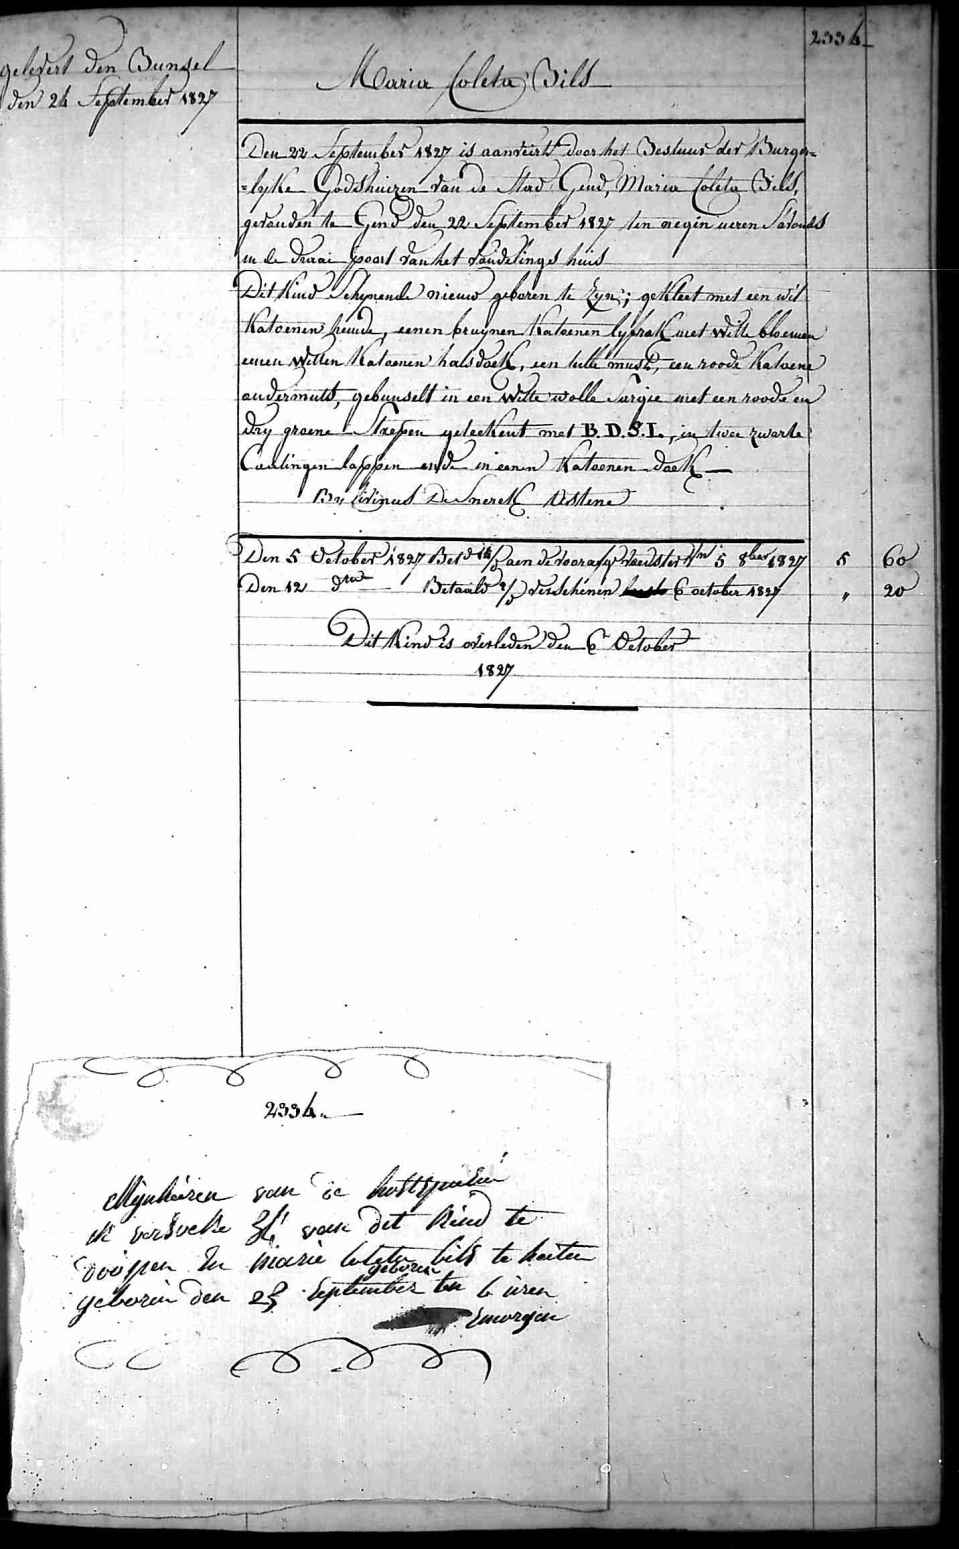 2334
gelevert den Bunsel
den 24 September 1827
Maria Coleta Bils
Den 22 September 1827 is aanveirt door het Bestuur der Burger=
=lyke Godshuizen van de Stad Gend, Maria Coleta Bils,
gevonden te Gend den 22 September 1827 ten negen ueren S'avonds
in de draai poort van het vondelings huis
Dit Kind Schynende nieuw geboren te Zyn; gekleet met een wit
Katoenen hemde, eenen bruynen Katoenen lyfrok met witte bloemen
eenen Witten Katoenen halsdoek, een tulle muts, een roode Katoene
ondermuts, gebunselt in een Witte wolle Sargie met een roode en
dry groene Strepen geteekent met B.D.S.L., in twee zwarte
lappen ende in eenen Katoenen doek
By Livinus De Snerck
Den 5 October 1827 Bet.d aen de voorafg 5 8ber 1827 5 60
Den 12 d.to Betaald verschenen 6 october 1827 " 20
Dit Kind is overleden den 6 October
1827
2334.
Mynheeren van de
ik versoeke van dit kind te
doopen En marie coleta bils te heeten
geboren
geboren den 23 September ten 6 uren
Smorgen